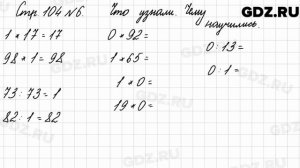 GDZ.RU
Стр. 104 №6. Что узнали. Чему научились.
1 * 17 = 17
98 * 1 = 98
73 : 73 = 1
82 : 1 = 82
0 * 92 =
1 * 65 =
1 * 0 =
19 * 0 =
0 : 13 =
0 : 1 =
GDZ.RU